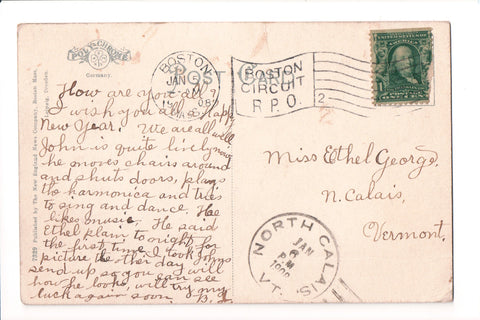 POLY-CHROME
Germany.
POST CARD
How are you all?
I wish you all a happy
New Year. We are all well
John is quite lively now
he moves chairs around
and shuts doors, plays
the harmonica and tries
to sing and dance. He
likes music. He said
Ethel plain to night, for
the first time. I took John's
picture the other day I will
send up, so you can see
how he looks, will try my
luck again soon.
7239 Published by The New England News Company, Boston Mass.
Leipzig, Dresden.
BOSTON
JAN
MASS.
BOSTON
CIRCUIT
R.P.O.
2
Miss Ethel George,
N. Calais,
Vermont.
NORTH CALAIS,
JAN
6
VT.